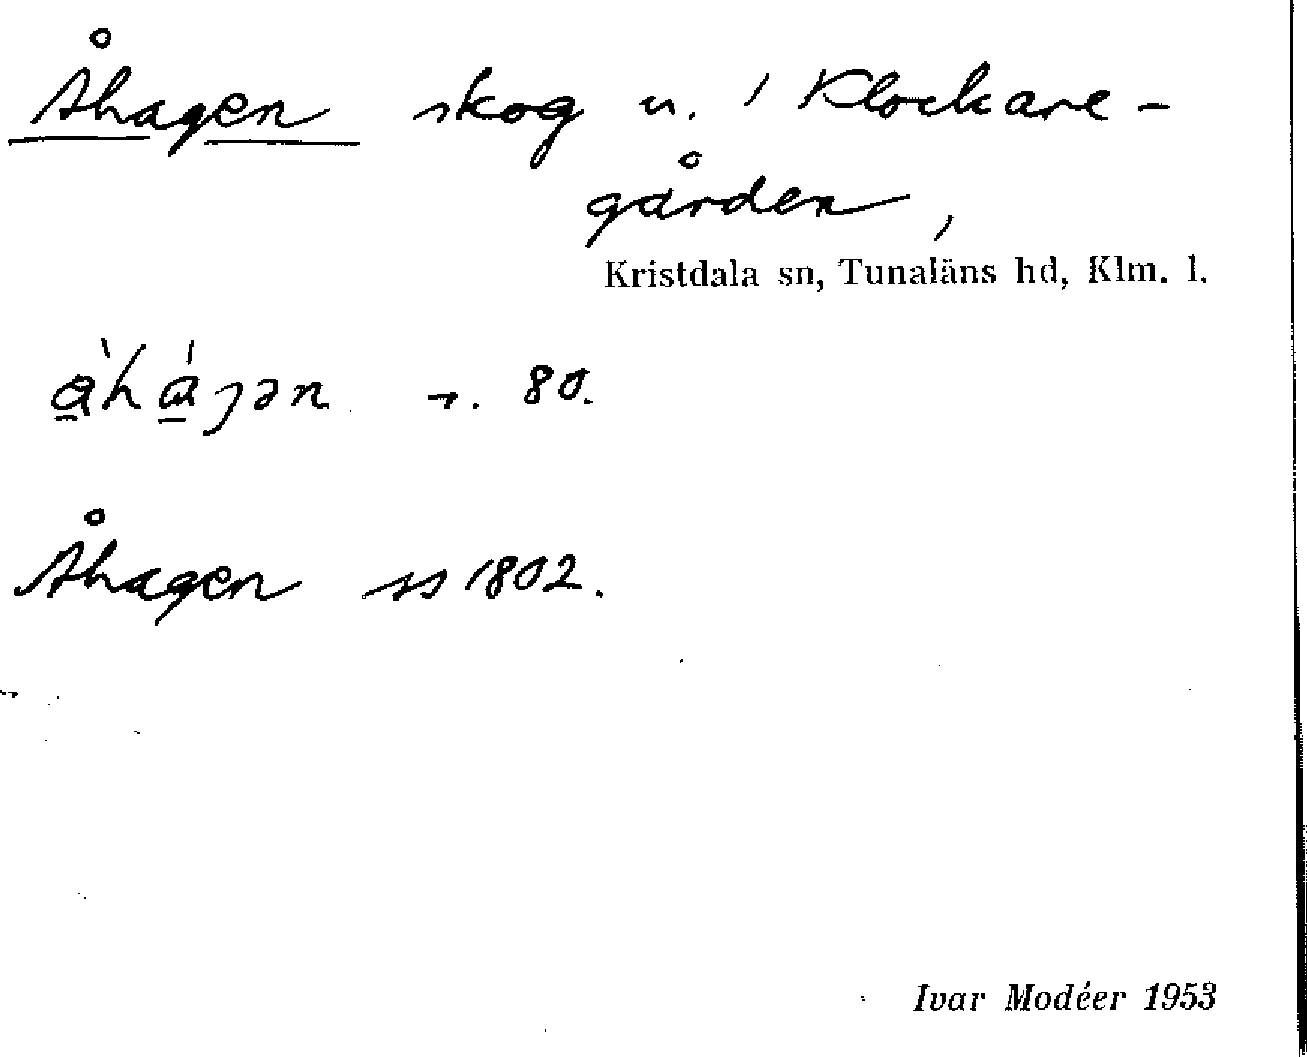 Åhagen skog u. 1 Klockare-
gården,
Kristdala sn, Tunaläns hd, Klm. l.
80.
Åhagen ss 1802.
Ivar Modéer 1953